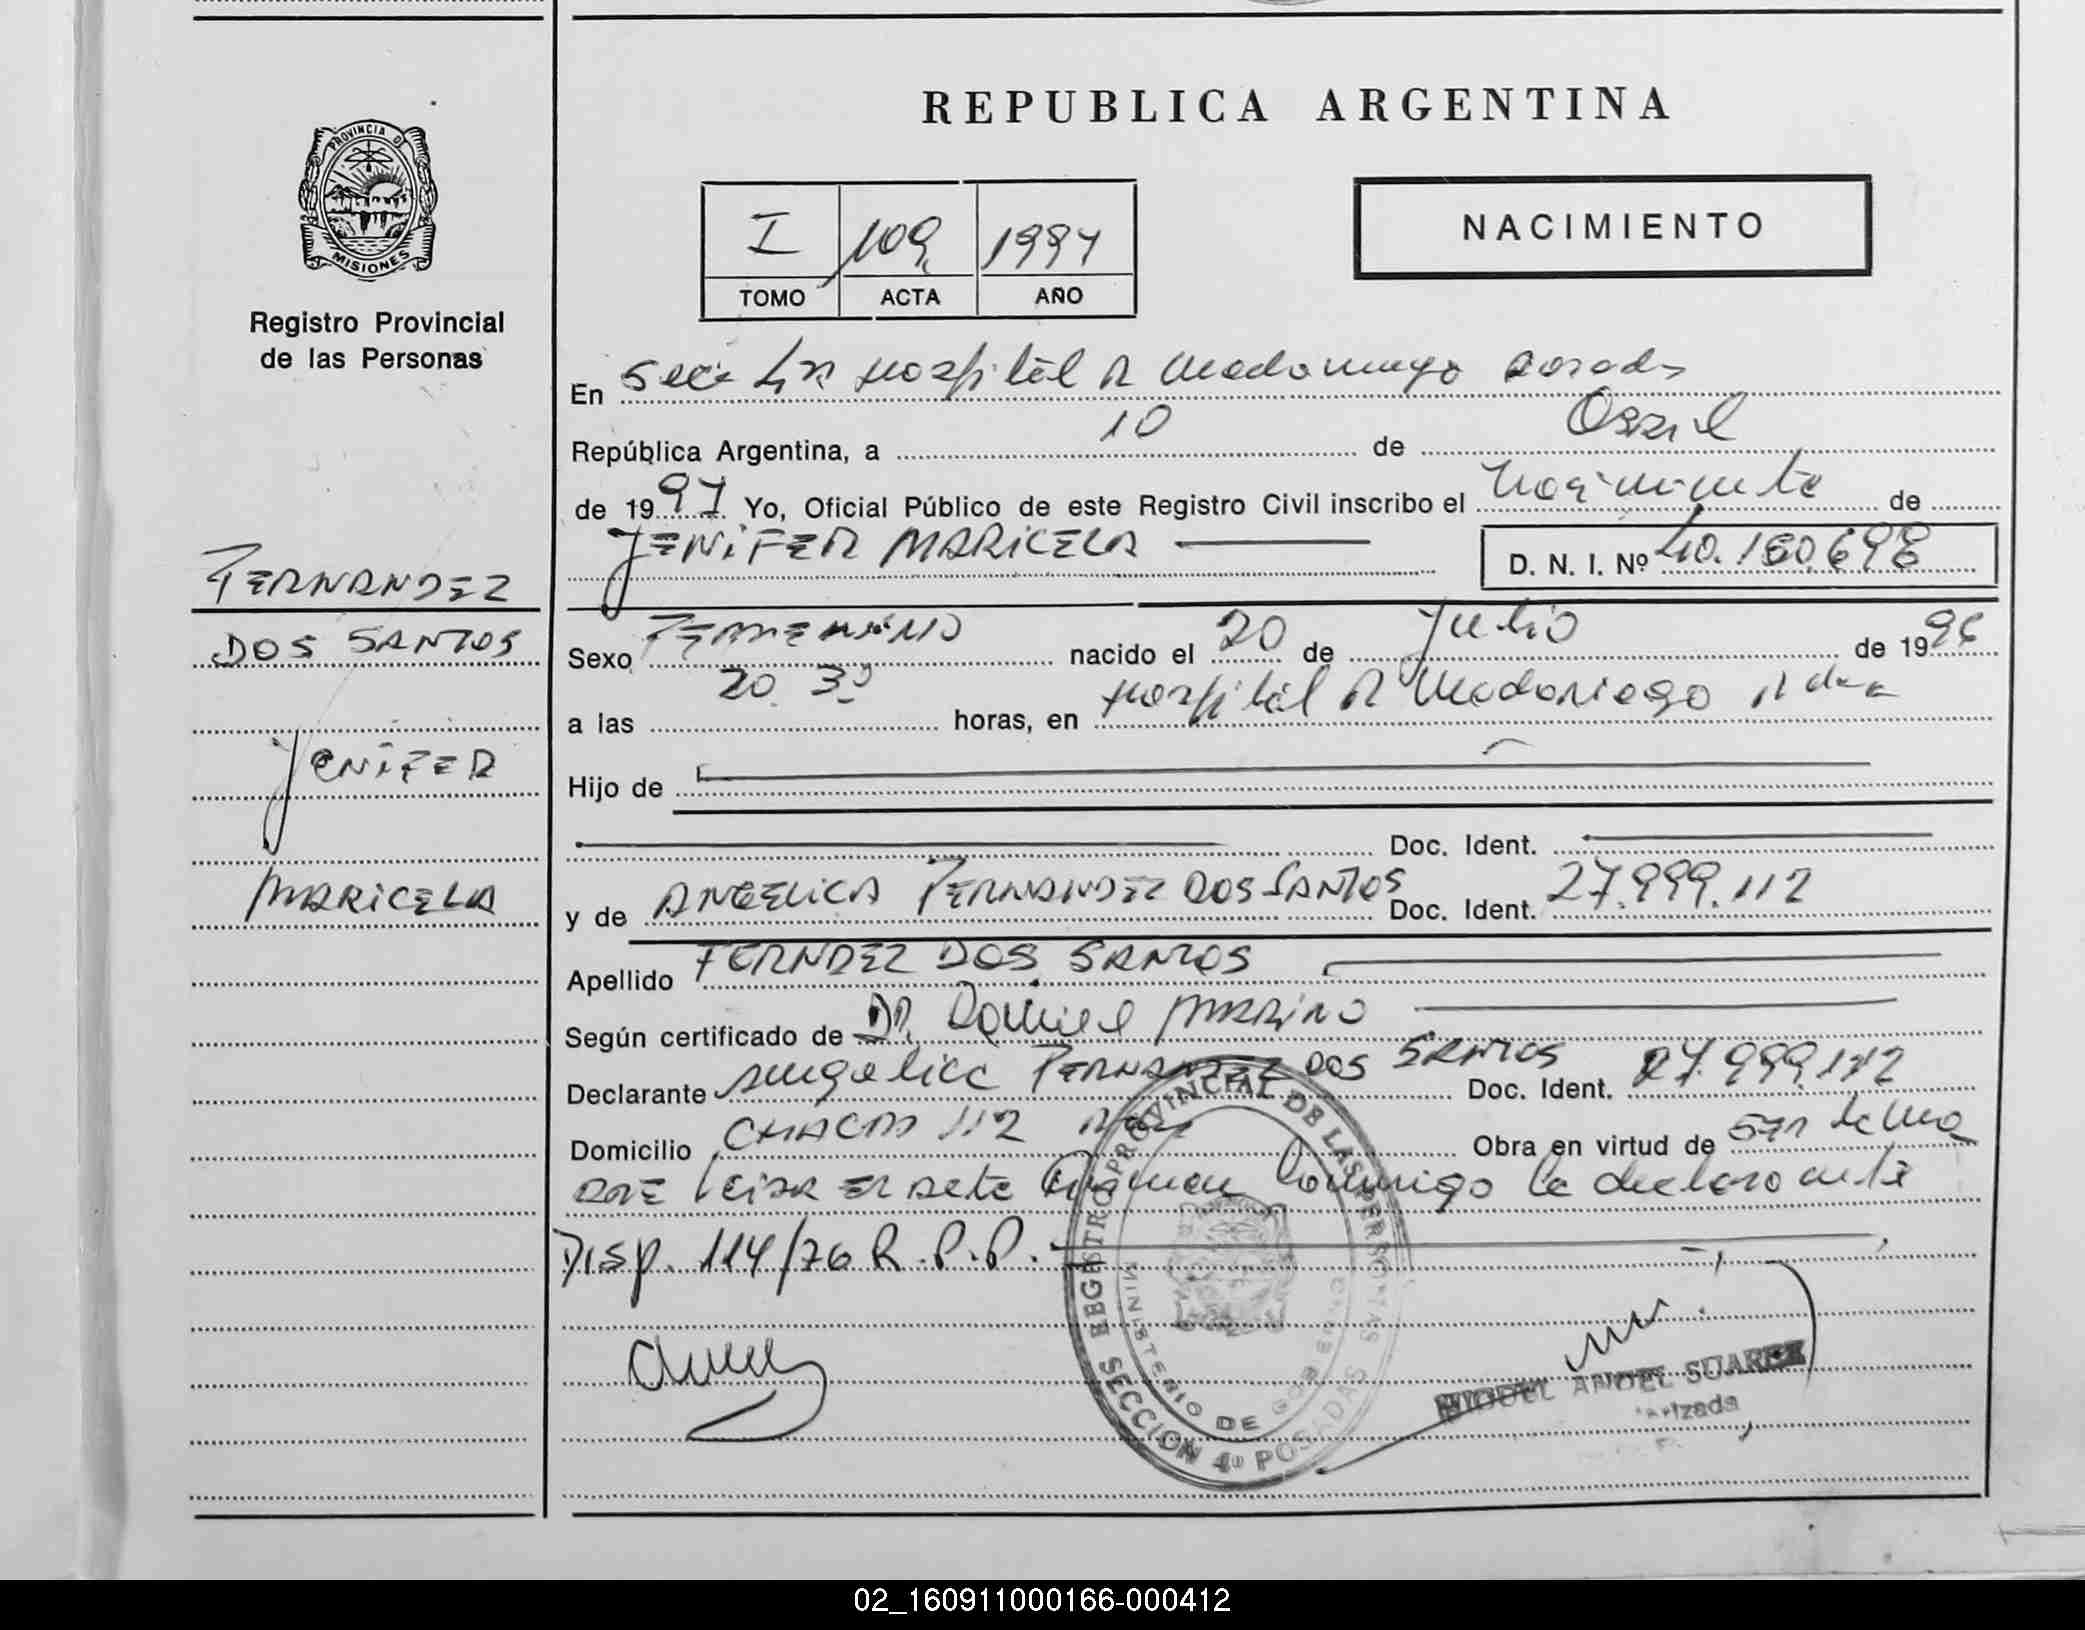 REPUBLICA ARGENTINA
PROVINCIA DE
MISIONES
Registro Provincial
de las Personas
I 109 1997
TOMO ACTA AÑO
NACIMIENTO
En Secc 4ta Hospital R Madariaga Posadas
República Argentina, a 10 de Abril
de 1997 Yo, Oficial Público de este Registro Civil inscribo el nacimiento de
JENIFER MARICELA
D. N. I. Nº 40.160.698
FERNANDEZ
DOS SANTOS
JENIFER
MARICELA
Sexo FEMENINO nacido el 20 de Julio de 1996
a las 20.30 horas, en Hospital R Madariaga
Hijo de
Doc. Ident.
y de ANGELICA FERNANDEZ DOS SANTOS Doc. Ident. 27.999.112
Apellido FERNDEZ DOS SANTOS
Según certificado de DR. Daniel MARINO
Declarante Angelica FERNANDEZ DOS SANTOS Doc. Ident. 27.999.112
Domicilio CHACO 112 Obra en virtud de
la declarante
DISP. 114/76 R.P.P.
REGISTRO PROVINCIAL DE LAS PERSONAS
MINISTERIO DE GOBIERNO
SECCION 4ª POSADAS
MIGUEL ANGEL SUAREZ
02_160911000166-000412